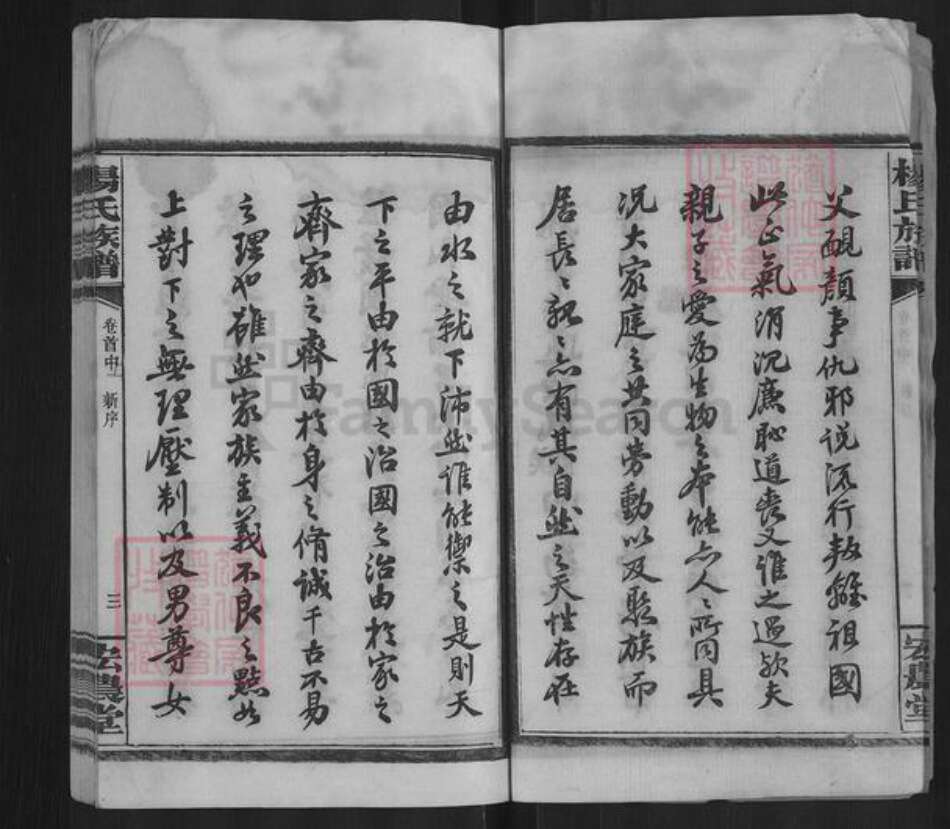 楊氏族譜
宏農堂
父靦顏事仇邪说流行叛離祖國
此正氣消沉廉恥道喪又誰之過欤夫
親子之愛為生物之本能亦人〻所同具
况大家庭之共同劳動以及聚族而
居長〻親〻亦有其自然之天性存在
由水之就下沛然谁能禦之是則天
下之平由於國之治國之治由於家之
齊家之齊由於身之脩誠千古不易
之理也雖然家族主義不良之點如
上對下之無理壓制以及男尊女
楊氏族譜
卷首中 新序
三
宏農堂
FamilySearch